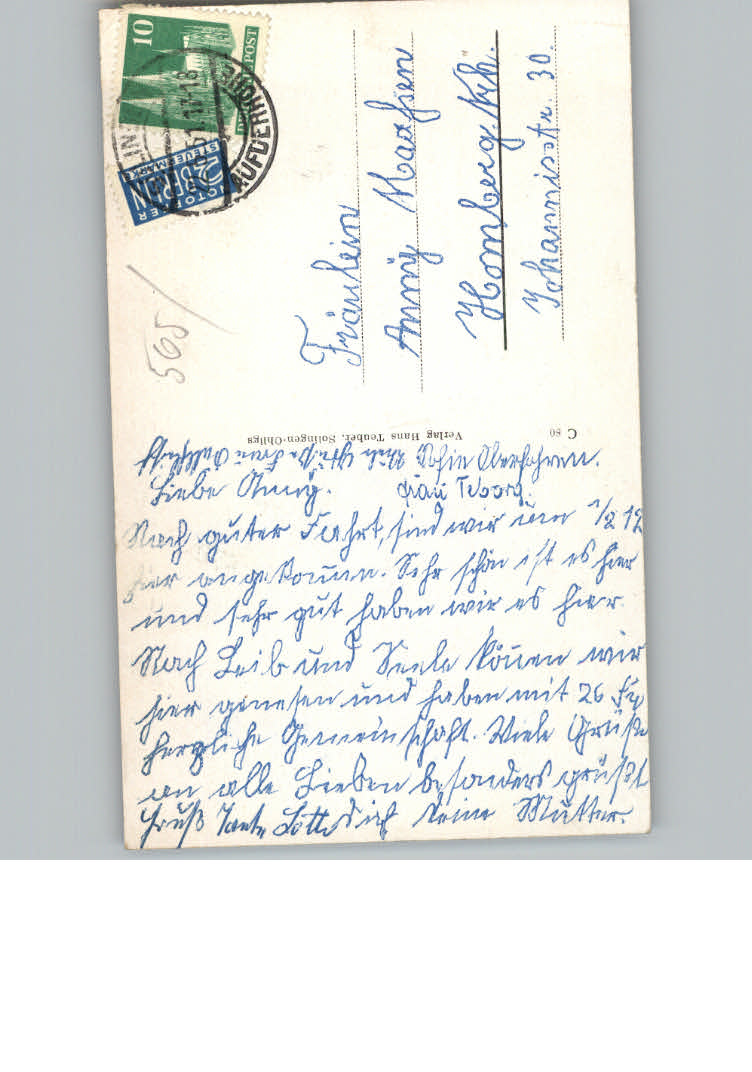 10
POST
17-18
AUFDERHÖHE
NOTOPFER
2 BERLIN
STEUERMARKE
565
Fräulein
Anny Maassen
Homberg. Nrh.
Johannisstr. 30.
C 80
Verlag Hans Teuber, Solingen-Ohligs
viele Grüße Frau
Frau Teborg.
Liebe Anny.
Nach guter Fahrt, sind wir um 1/2 12
hier angekommen. Sehr schön ist es hier
und sehr gut haben wir es hier.
Nach Leib und Seele können wir
hier genesen und haben mit 26
herzliche Gemeinschaft. Viele Grüße
an alle Lieben besonders grüßt
dich deine Mutter.
Gruß Tante Lotte